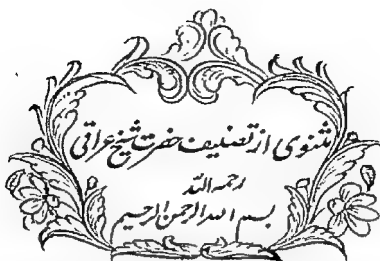 مثنوی از تصنیف حضرت شیخ عراقی
رحمہ اللہ
بسم اللہ الرحمن الرحیم